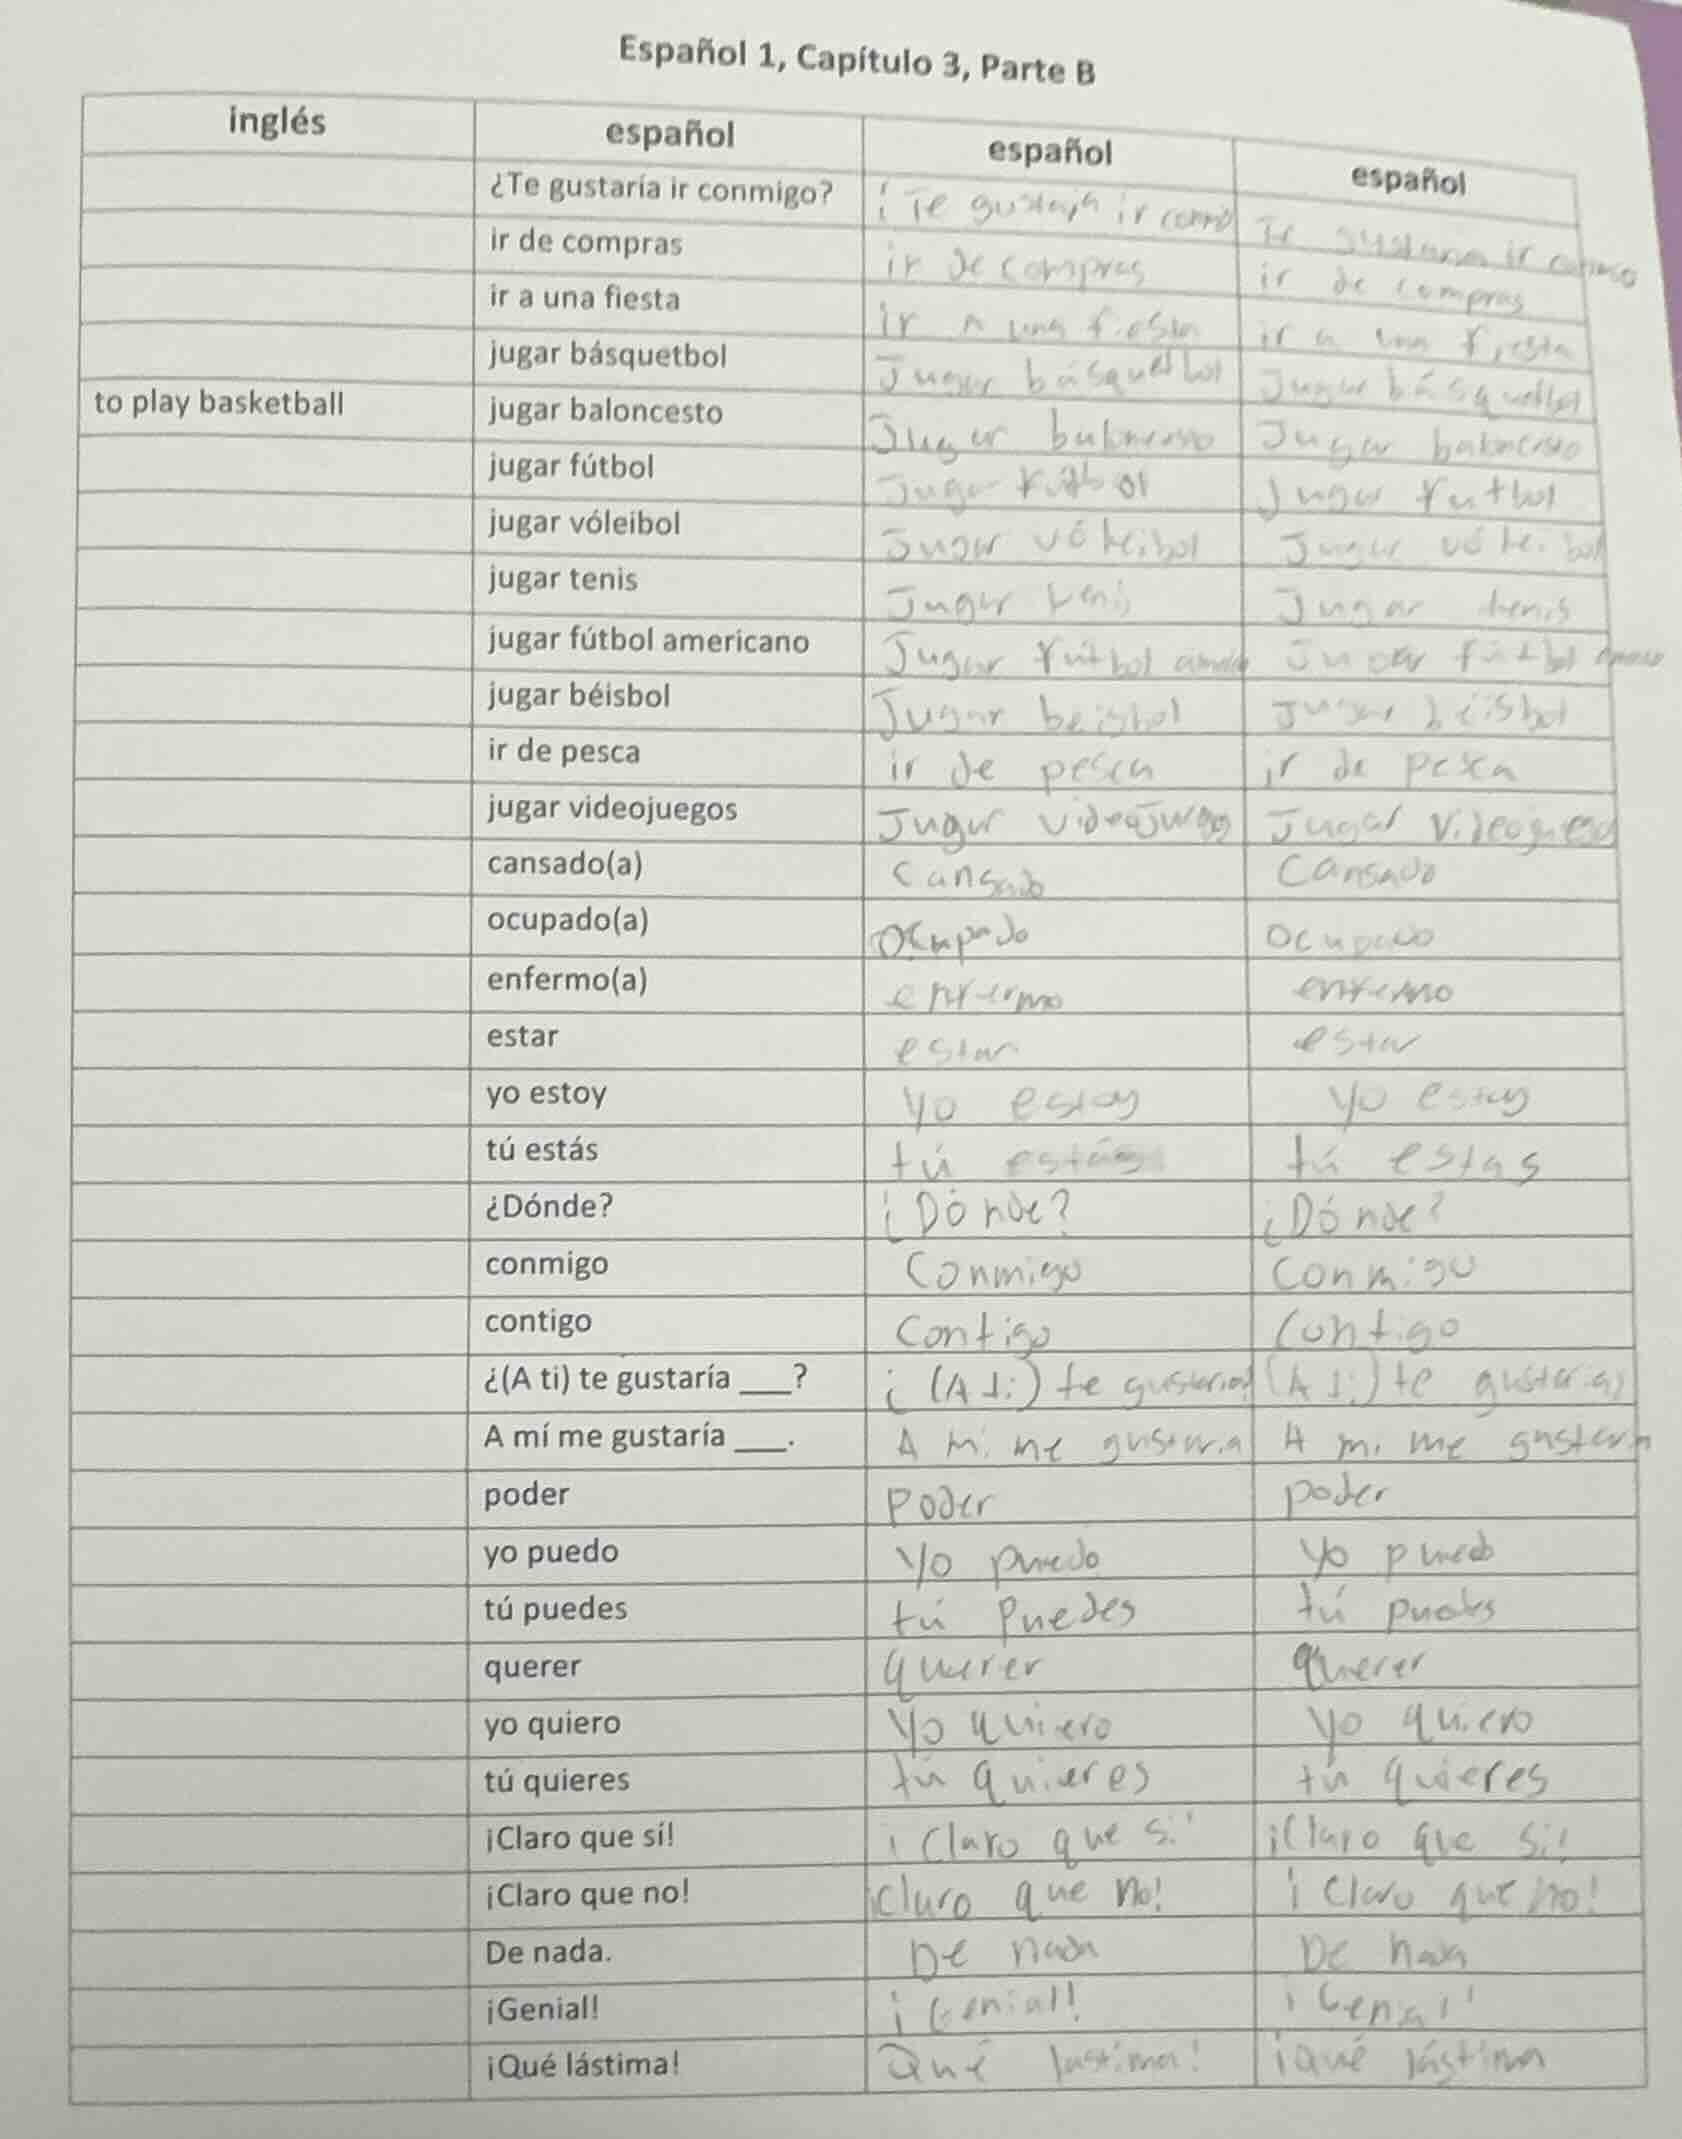 Español 1, Capítulo 3, Parte B
inglés español español español
¿Te gustaría ir conmigo? ¿Te gustaría ir Te gustaria ir
ir de compras ir de compras ir de compras
ir a una fiesta ir a una fiesta ir a una fiesta
jugar básquetbol Jugar básquetbol Jugar básquetbol
to play basketball jugar baloncesto Jugar baloncesto Jugar baloncesto
jugar fútbol Jugar fútbol Jugar futbol
jugar vóleibol Jugar vóleibol Jugar vóleibol
jugar tenis Jugar tenis Jugar tenis
jugar fútbol americano Jugar fútbol Jugar fútbol
jugar béisbol Jugar beisbol Jugar béisbol
ir de pesca ir de pesca ir de pesca
jugar videojuegos Jugar Jugar
cansado(a) Cansado Cansado
ocupado(a) Ocupado Ocupado
enfermo(a) enfermo enfermo
estar estar estar
yo estoy yo estoy yo estoy
tú estás tú estás tú estas
¿Dónde? ¿Dónde? ¿Dónde?
conmigo Conmigo Conmigo
contigo Contigo Contigo
¿(A ti) te gustaría ___? ¿(A ti) te gustaria? (A ti) te gustaria?
A mí me gustaría ___. A mi me gustaria A mi me gustaria
poder Poder poder
yo puedo yo puedo yo puedo
tú puedes tú Puedes tú puedes
querer querer querer
yo quiero yo quiero yo quiero
tú quieres tú quieres tú quieres
¡Claro que sí! ¡Claro que sí! ¡Claro que Si!
¡Claro que no! ¡Claro que no! ¡Claro que no!
De nada. De nada De nada
¡Genial! ¡Genial! ¡Genial!
¡Qué lástima! Qué lastima! ¡Qué lástima